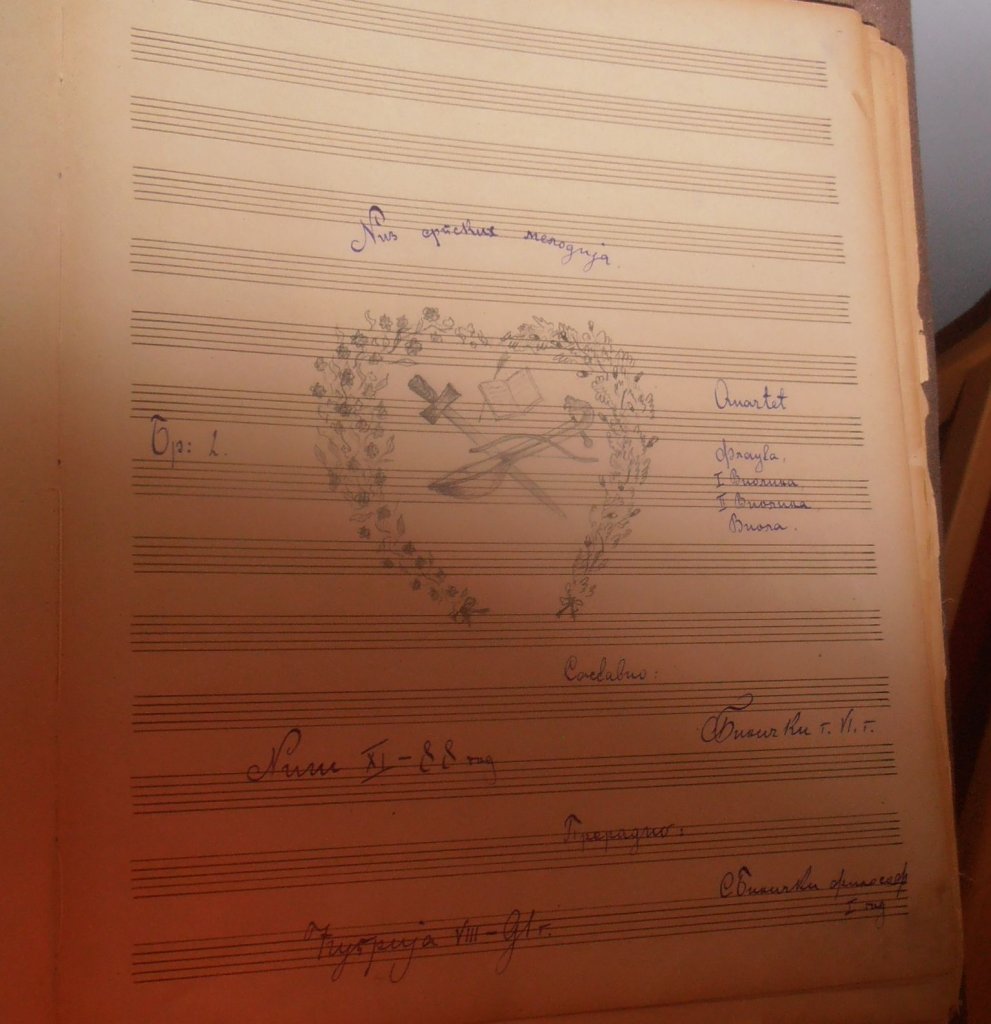 Низ српских мелодија.
Quartet
Бр: 1.
Флаута,
I Виолина
II Виолина
Виола.
Саставио:
СБинички г. VI. г.
Ниш XI – 88 год
Прерадио:
СБинички филозоф
I год
Ћуприја VIII – 91 г.